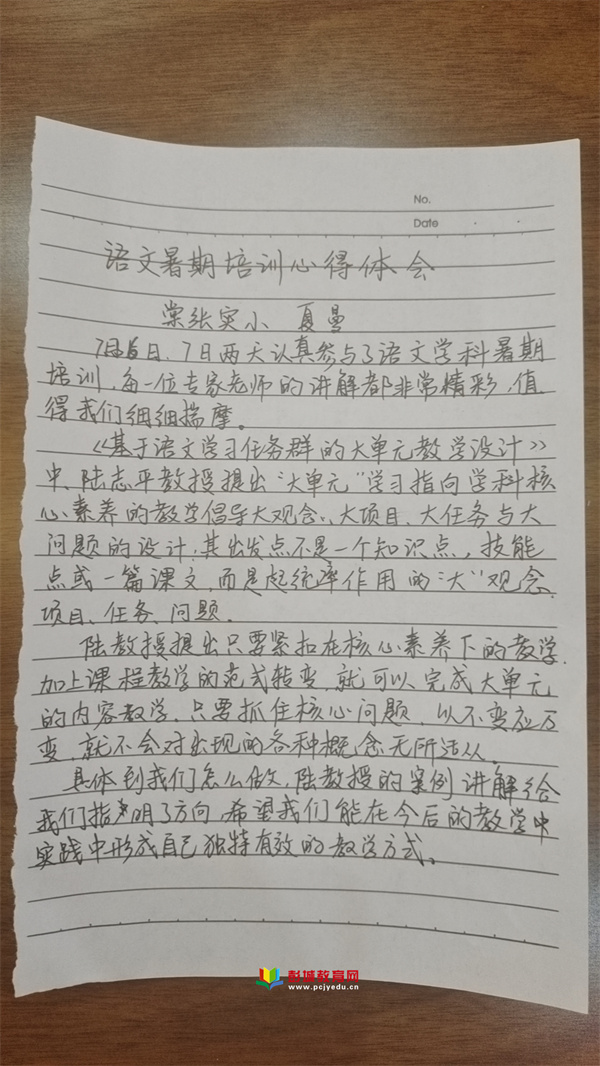 No.
Date
语文暑期培训心得体会
棠张实小 夏曼
7月6日、7日两天认真参与了语文学科暑期
培训,每一位专家老师的讲解都非常精彩,值
得我们细细揣摩。
《基于语文学习任务群的大单元教学设计》
中,陆志平教授提出“大单元”学习指向学科核
心素养的教学倡导大观念、大项目、大任务与大
问题的设计,其出发点不是一个知识点,技能
点或一篇课文,而是起统率作用的“大”观念、
项目、任务、问题.
陆教授提出只要紧扣在核心素养下的教学,
加上课程教学的范式转变,就可以完成大单元
的内容教学.只要抓住核心问题,以不变应万
变,就不会对出现的各种概念无所适从.
具体到我们怎么做,陆教授的案例讲解给
我们指明了方向,希望我们能在今后的教学中
实践中形成自己独特有效的教学方式。
彭城教育网
www.pcjyedu.cn